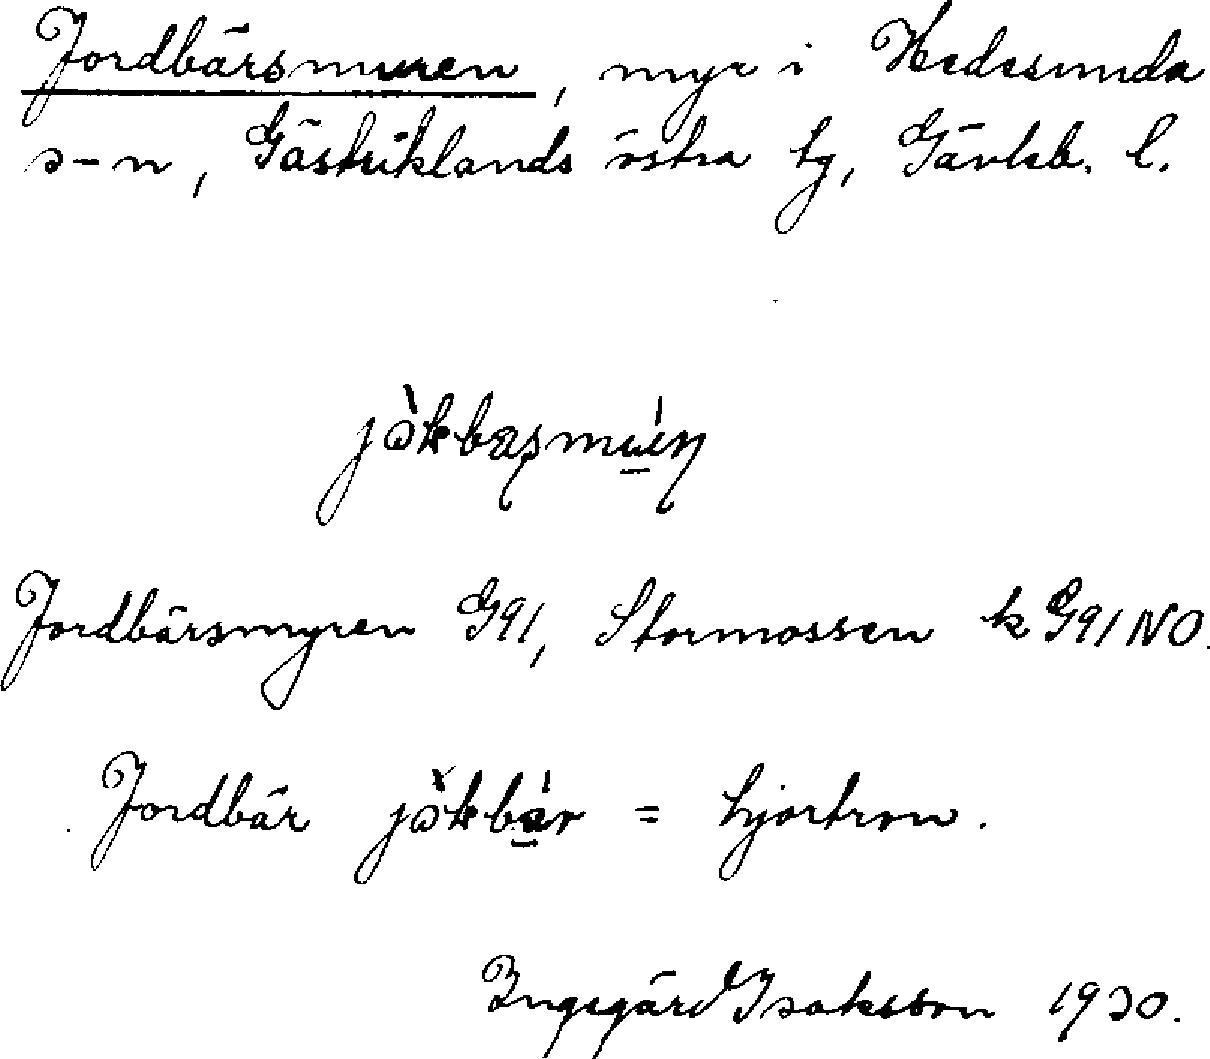 Jordbärsmuren, myr i Hedesunda
s-n, Gästriklands östra tg, Gävleb. l.
Jordbärsmyren G91, Stormossen k G91 NO.
Jordbär = hjortron.
Ingegärd Isaksson 1930.